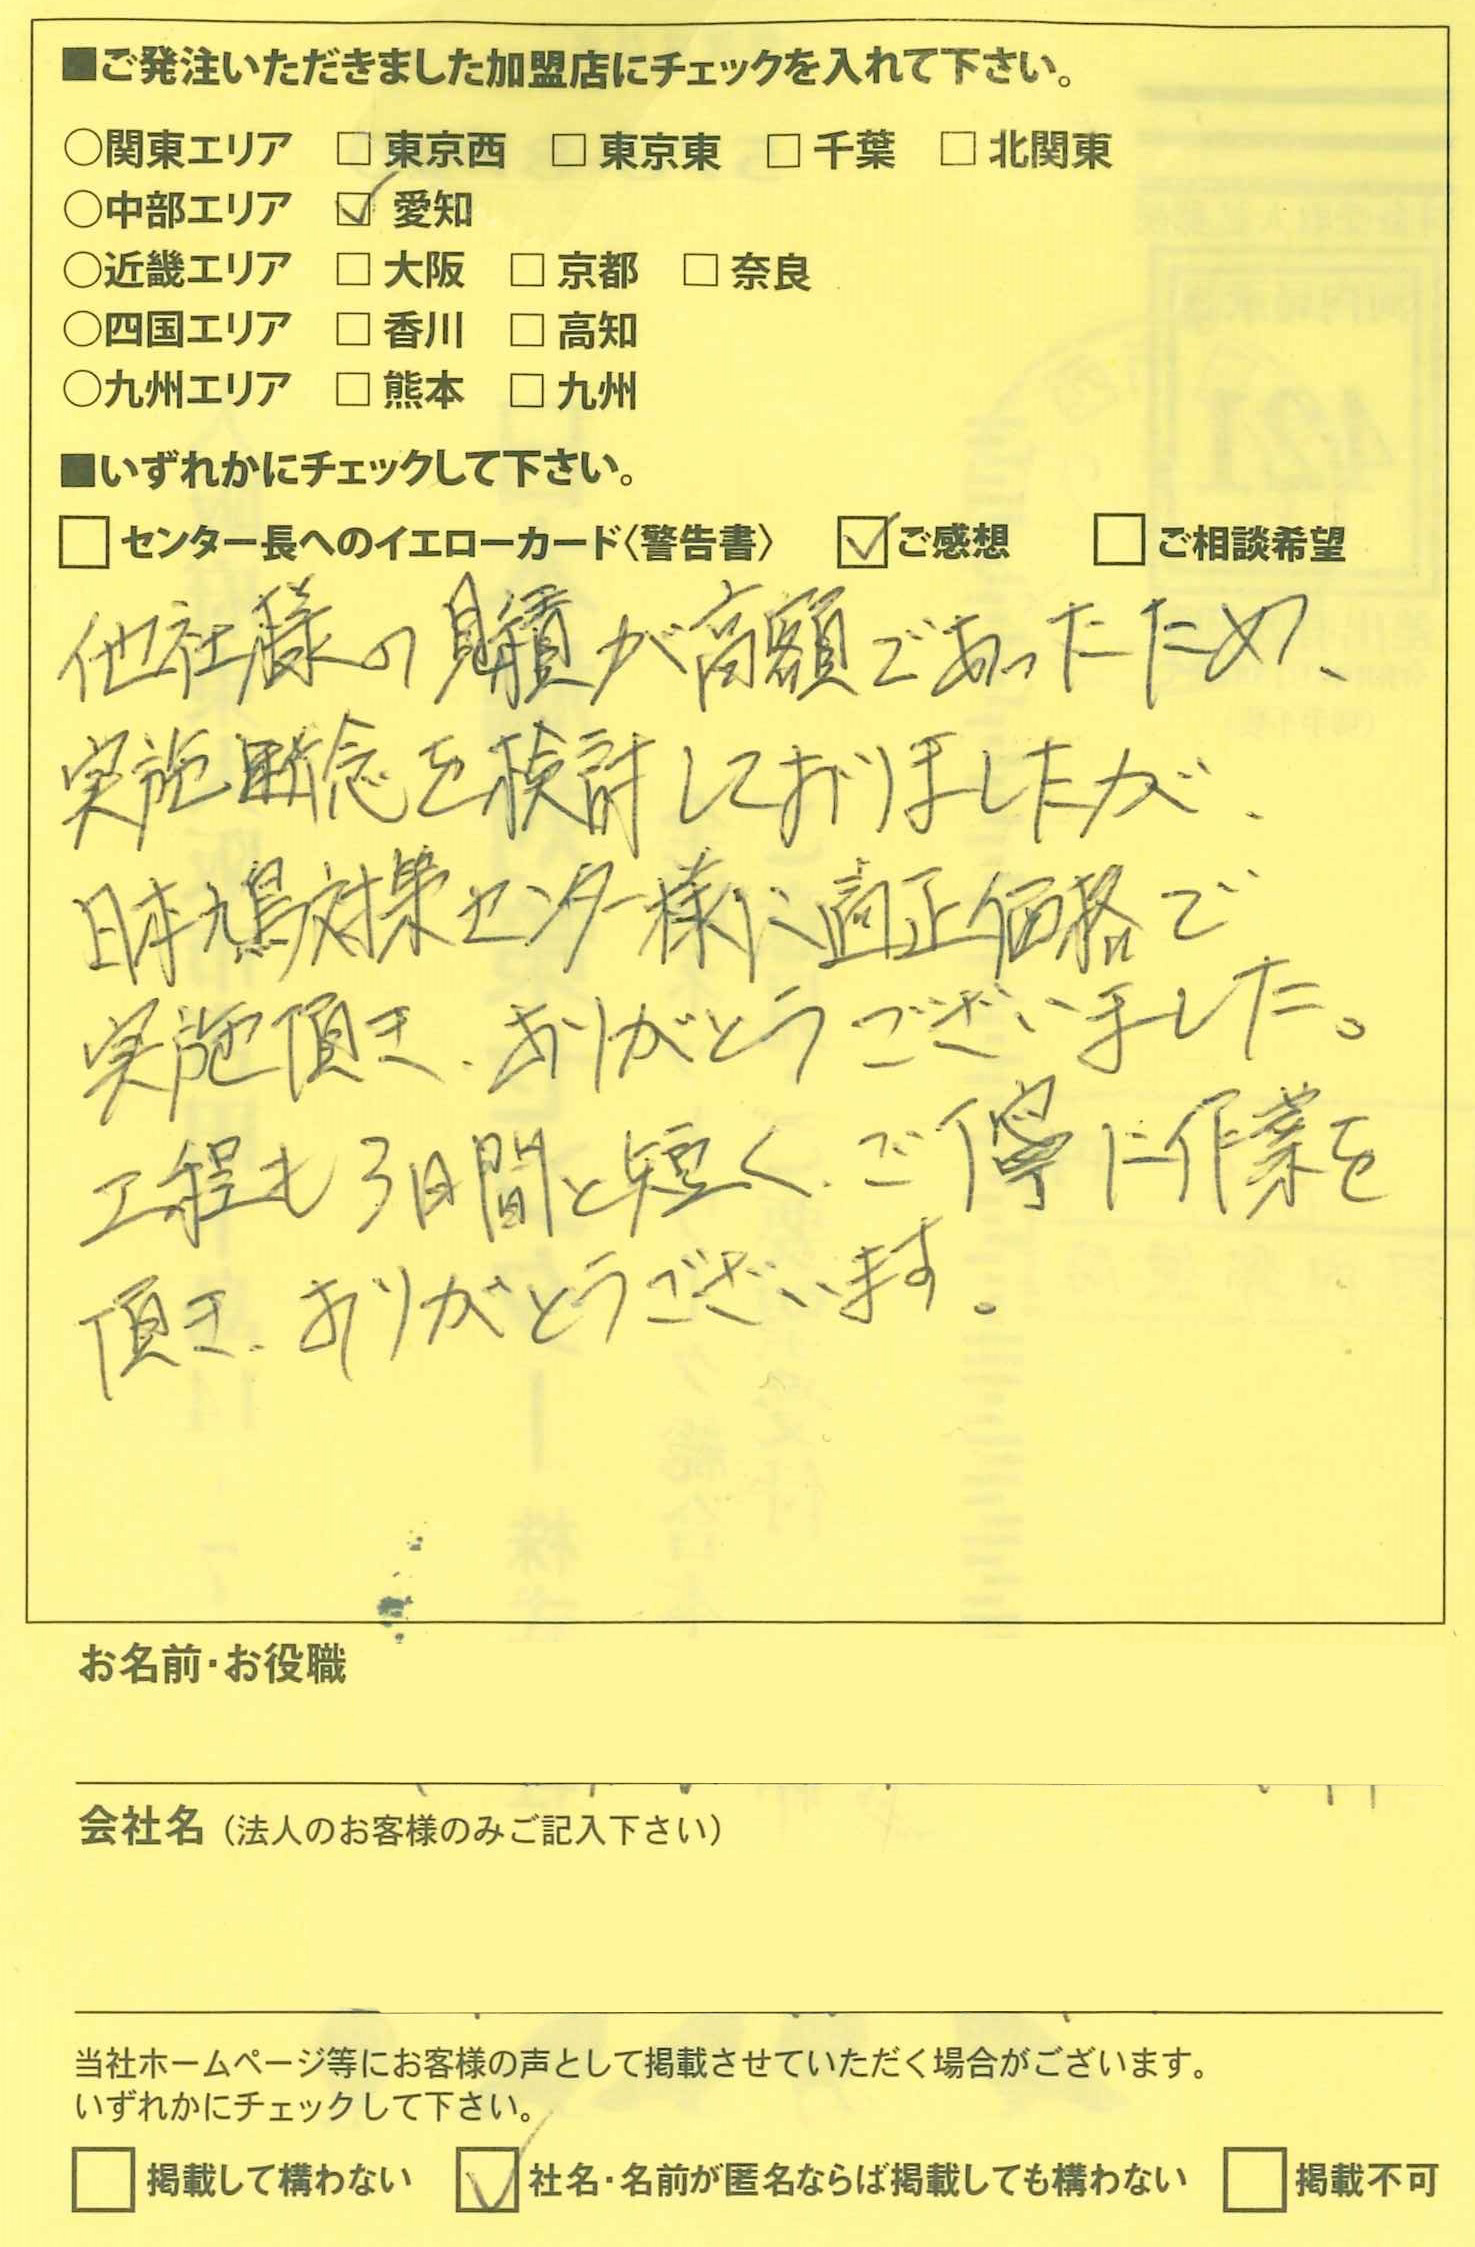 ■ご発注いただきました加盟店にチェックを入れて下さい。
○関東エリア □ 東京西 □ 東京東 □ 千葉 □ 北関東
○中部エリア ☑ 愛知
○近畿エリア □ 大阪 □ 京都 □ 奈良
○四国エリア □ 香川 □ 高知
○九州エリア □ 熊本 □ 九州
■いずれかにチェックして下さい。
□ センター長へのイエローカード〈警告書〉 ☑ ご感想 □ ご相談希望
他社様の見積が高額であったため、
実施断念を検討しておりましたが、
日本鳩対策センター様に適正価格で
実施頂き、ありがとうございました。
工程も3日間と短く、ご丁寧に作業を
頂き、ありがとうございます。
お名前・お役職
会社名（法人のお客様のみご記入下さい）
当社ホームページ等にお客様の声として掲載させていただく場合がございます。
いずれかにチェックして下さい。
□ 掲載して構わない ☑ 社名・名前が匿名ならば掲載しても構わない □ 掲載不可